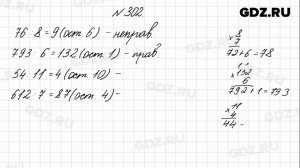 GDZ.RU
N 302
76 : 8 = 9 (ост. 6) - неправ
793 : 6 = 132 (ост. 1) - прав
54 : 11 = 4 (ост. 10) -
612 : 7 = 87 (ост. 4) -
× 8
9
72+6=78
× 132
6
792+1=793
× 11
4
44 -